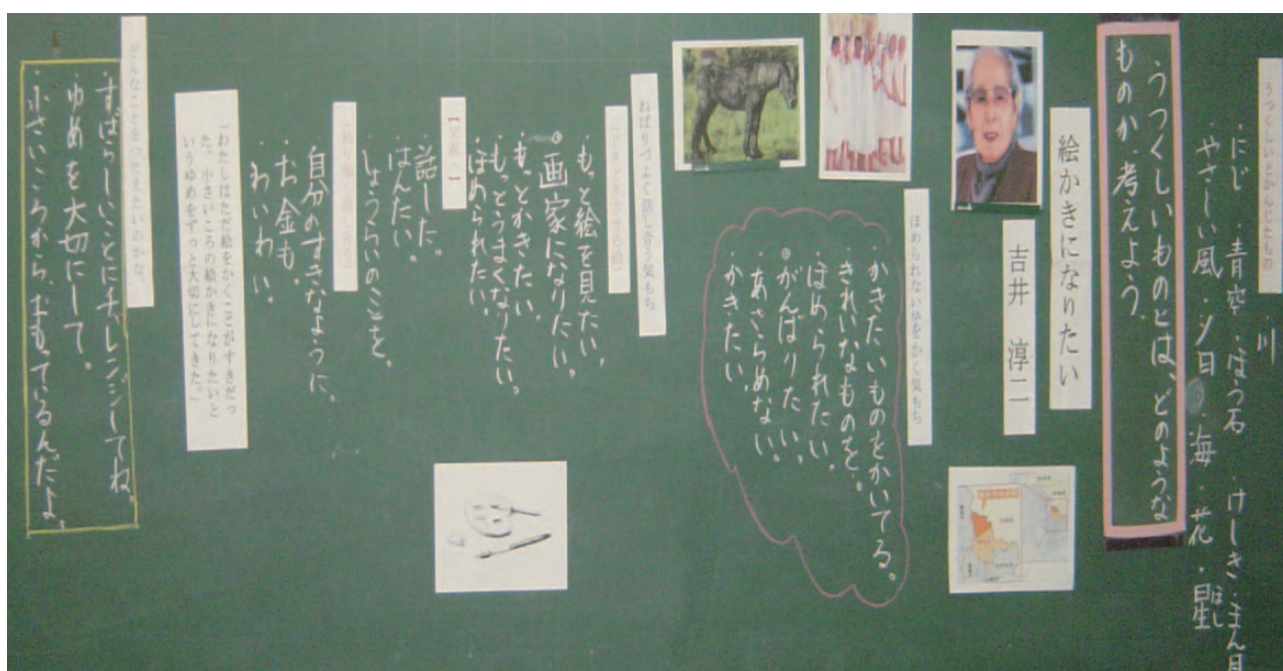 うつくしいとかんじたもの
・川
・にじ・青空・ほう石・けしき・まん月
やさしい風・夕日・海・花・星
ほし
うつくしいものとは、どのような
ものか、考えよう。
絵かきになりたい
吉井 淳二
ほめられない絵をかく気もち
・かきたいものをかいてる。
きれいなものを。
・ほめられたい。
◎がんばりたい。
・あきらめない。
・かきたい。
ねばりづよく話し合う気もち
・もっと絵を見たい。
◎画家になりたい。
・もっとかきたい。
・もっとうまくなりたい。
・ほめられたい。
【父親へ】
・話した。
・はんたい
・しょうらいのことを。
自分のすきなように。
・お金も。
・わいわい。
「わたしはただ絵をかくことがすきだっ
た。小さいころの絵かきになりたいと
いうゆめをずっと大切にしてきた。」
どんなことをつたえたいのかな。
・すばらしいことにチャレンジしてね。
・ゆめを大切にして。
・小さいころから、まもっているんだよ。